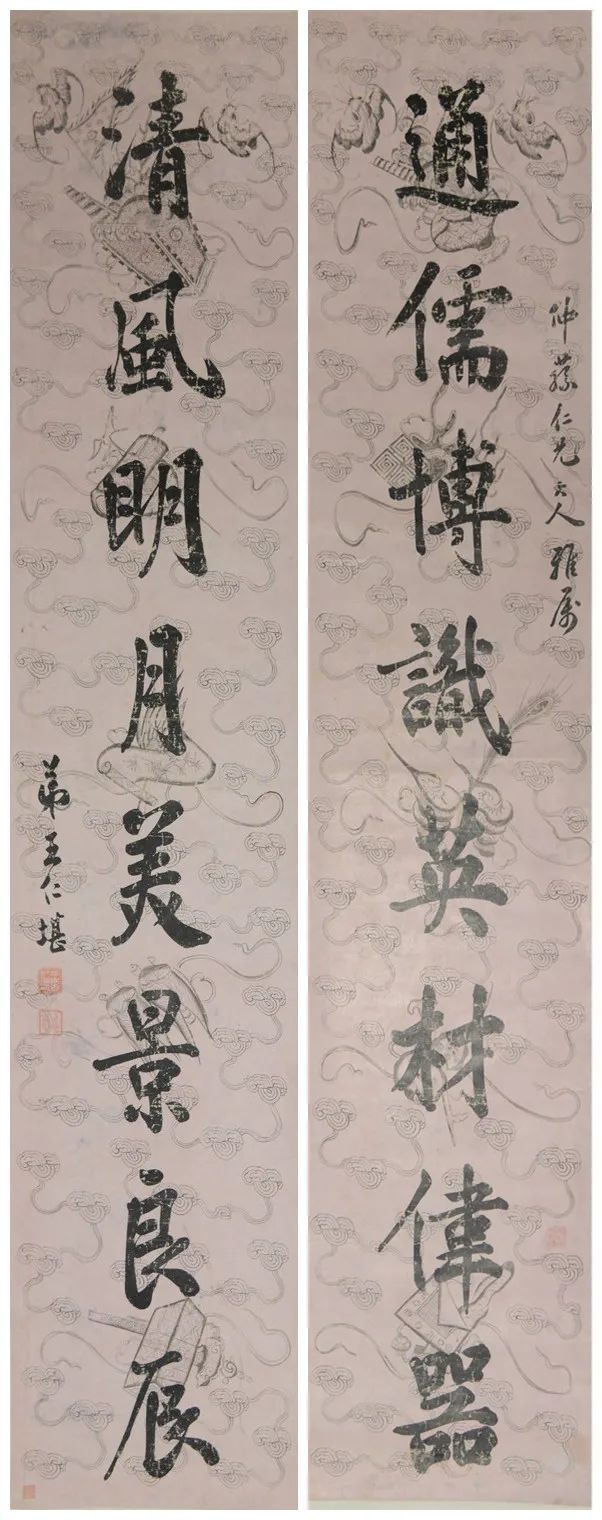 仲蘓仁兄大人雅属
通儒博識英材偉器
清風明月美景良辰
弟王仁堪